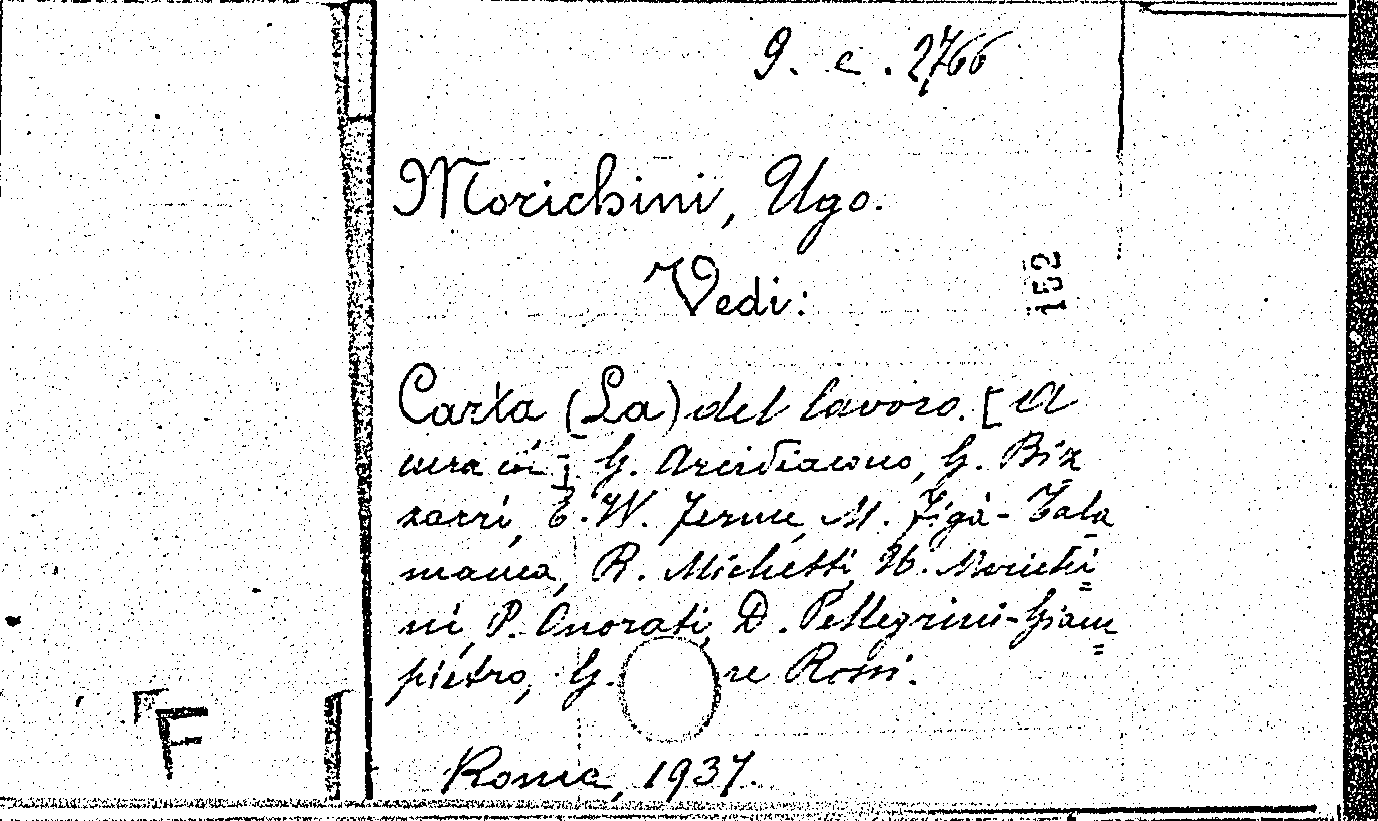 9. c. 2766
Morichini, Ugo.
Vedi:
152
Carta (La) del lavoro. [A
cura di] G. Arcidiacono, G. Biz
zarri, E. W. Ferme, M. Figà-Tala
manca, R. Michetti, U. Morichi
ni, P. Onorati, D. Pellegrini-Giam
pietro, G. re Rossi.
F
Roma, 1937.